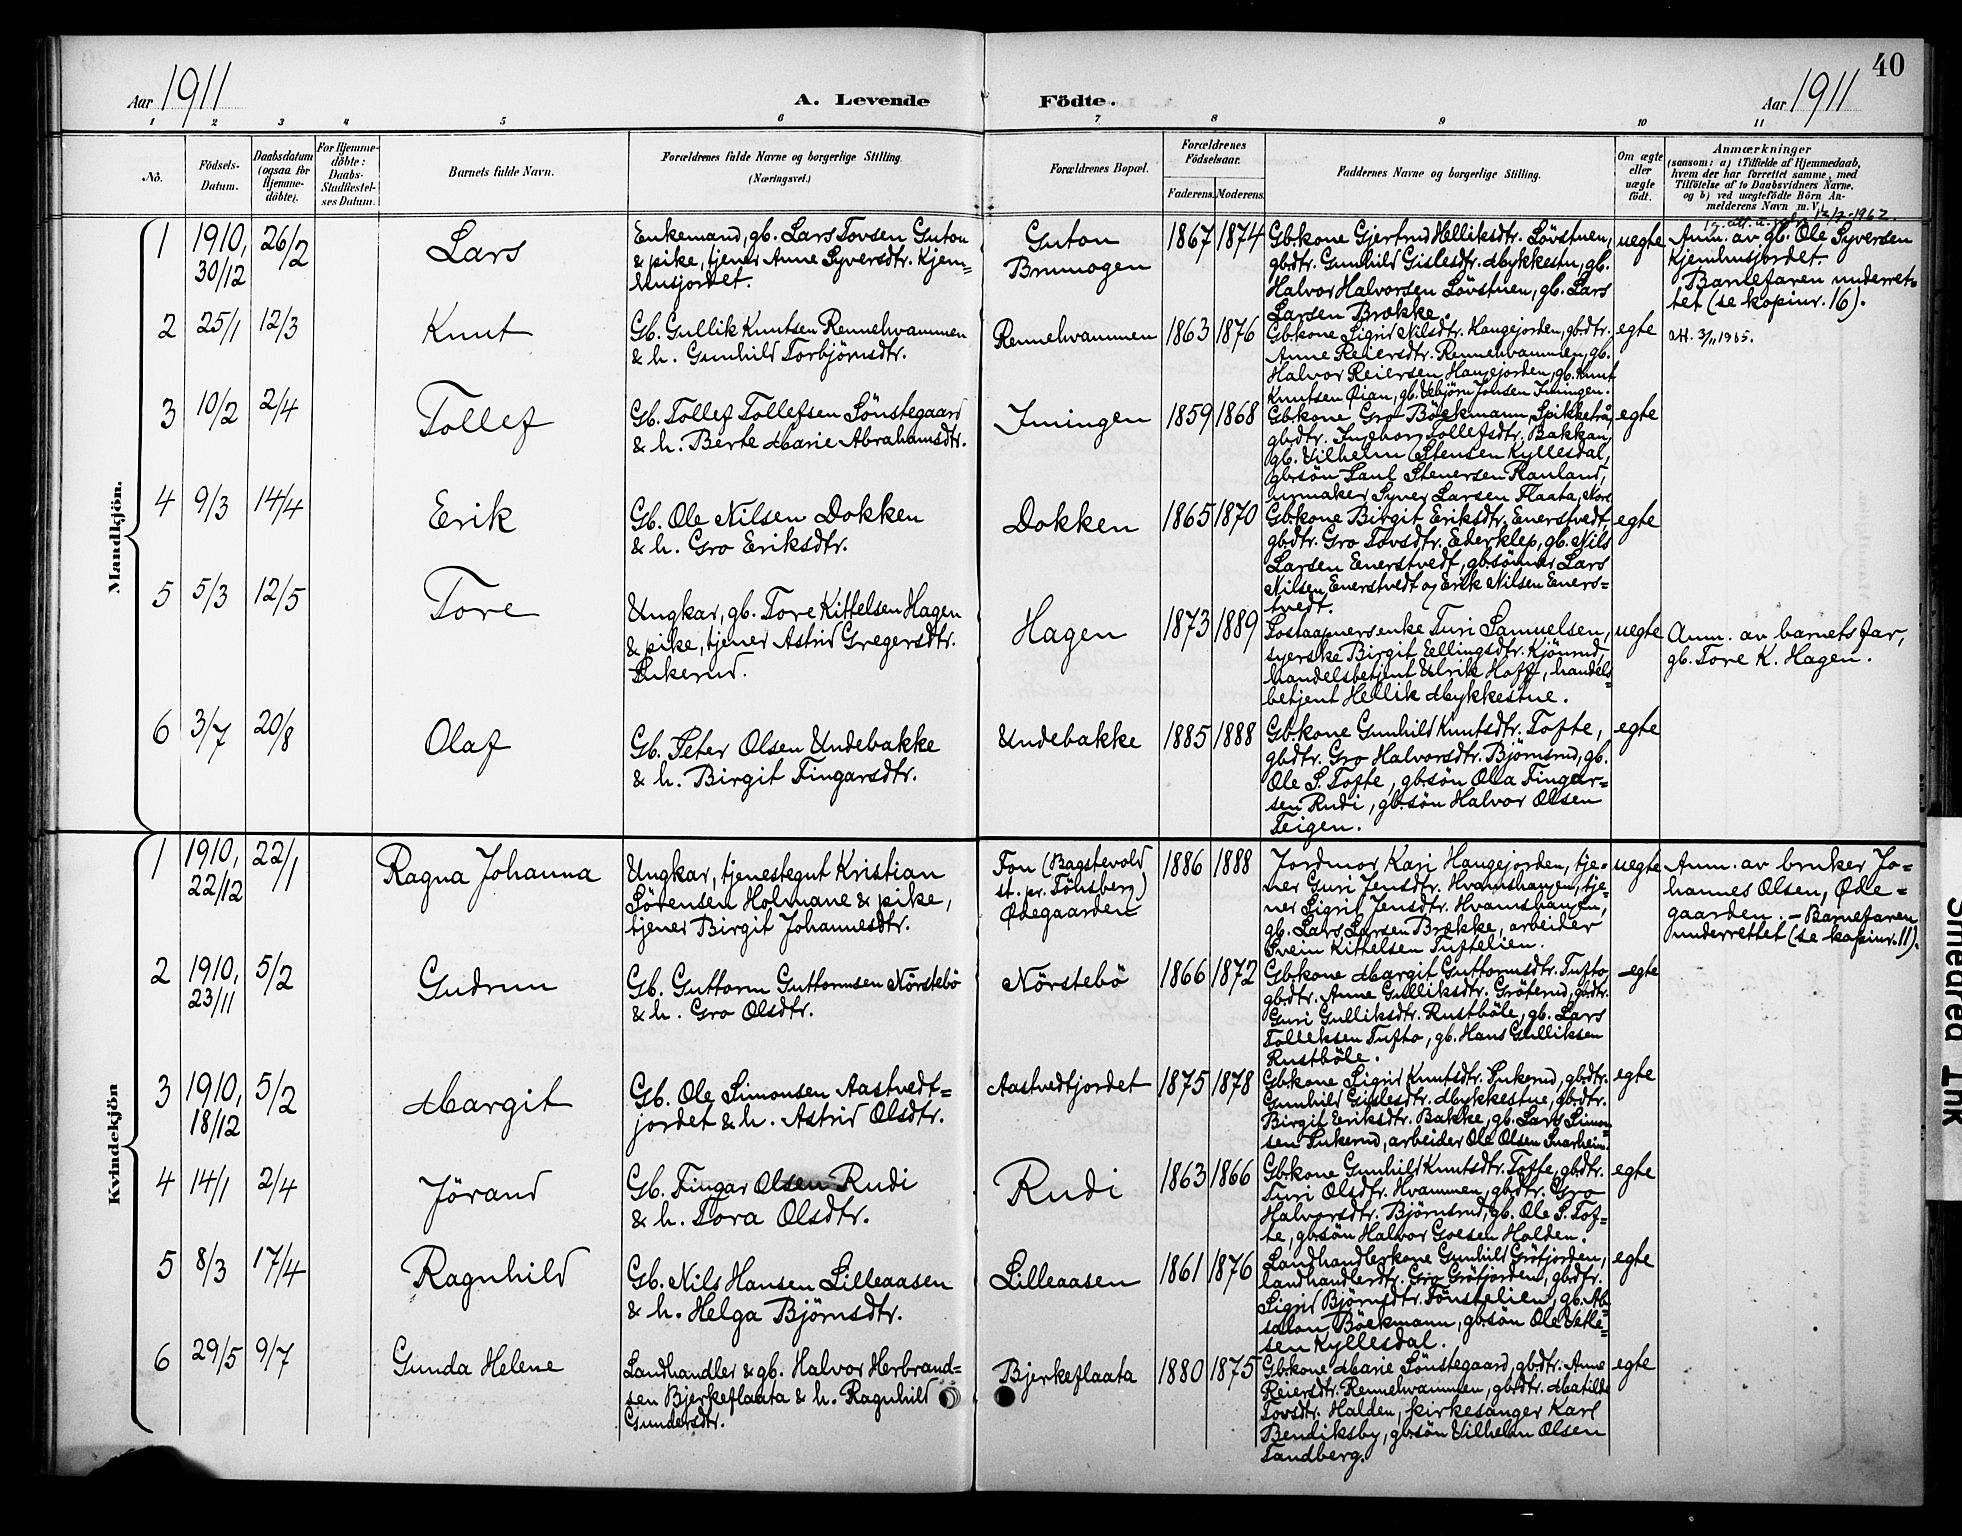 40
Aar 1911
A. Levende Födte.
Aar 1911
1 2 3 4 5 6 7 8 9 10 11
No.
Födsels-Datum.
Daabsdatum (ogsaa for Hjemme-döbte).
For Hjemme-döbte: Daabs-Stadfæstel-ses Datum.
Barnets fulde Navn.
Forældrenes fulde Navne og borgerlige Stilling
(Næringsvei.)
Forældrenes Bopæl.
Forældrenes Födselsaar.
Faderens. Moderens.
Faddernes Navne og borgerlige Stilling.
Om ægte eller uægte födt.
Anmærkninger
(saasom: a) i Tilfælde af Hjemmedaab,
hvem der har forrettet samme, med
Tilföielse af to Daabsvidners Navne.
og b) ved uægtefödte Börn An-
melderens Navn m. V.)
Mandkjön.
1 1910, 30/12 26/2 Lars
Enkemand, gb. Lars Tovsen Guton
& pike, tjener Anne Syversdtr. Kjem-
husjordet.
Guton
Brunogen
1867 1874
Gbkone Gjertrud Helliksdtr. Lövstuen,
gbdtr. Gunhild Gislesdtr. Mykkestu, gb.
Halvor Halvorsen Lövstuen, gb. Lars
Larsen Brække.
uegte
12/7-1962.
Anm. av gb. Ole Syversen
Kjemhusjordet.
Barnefaren underret-
tet (se kopinr. 16).
2 25/1 12/3 Knut
Gb. Gullik Knutsen Rennehvammen
& h. Gunhild Torbjörnsdtr.
Rennehvammen
1863 1876
Gbkone Sigrid Nilsdtr. Haugejorden, gbdtr.
Anne Reiersdtr. Rennehvammen, gb.
Halvor Reiersen Haugejorden, gb. Knut
Knutsen Öian, gb. Vebjörn Johnsen Imingen.
egte
att. 3/11 1965.
3 10/2 2/4 Tollef
Gb. Tollef Tollefsen Sönstegaard
& h. Berte Marie Abrahamsdtr.
Imingen
1859 1868
Gbkone Gro Böckmann, Spikketrå,
gbdtr. Ingeborg Tollefsdtr. Bakkan,
gb. Vilhelm Stensen Kyllesdal,
gbsön Paul Stenersen Rauland,
urmaker Syver Larsen Flaata, Nore
egte
4 9/3 14/4 Erik
Gb. Ole Nilsen Dokken
& h. Gro Eriksdtr.
Dokken
1865 1870
Gbkone Birgit Eriksdtr. Enerstvedt,
gbdtr. Gro Tovsdtr. Ederklep, gb. Nils
Larsen Enerstvedt, gbsönner Lars
Nilsen Enerstvedt og Erik Nilsen Eners-
tvedt.
egte
5 5/3 12/5 Tore
Ungkar, gb. Tore Kittelsen Hagen
& pike, tjener Astrid Gregersdtr.
Lukerud.
Hagen
1873 1889
Postaapnersenke Turi Samuelsen,
syerske Birgit Ellingsdtr. Kjönrud,
handelsbetjent Ulrik Hoff, handels-
betjent Hellik Mykkestue.
uegte
Anm. av barnets far,
gb. Tore K. Hagen.
6 3/7 20/8 Olaf
Gb. Peter Olsen Undebakke
& h. Birgit Fingarsdtr.
Undebakke
1885 1888
Gbkone Gunhild Knutsdtr. Tofte,
gbdtr. Gro Halvorsdtr. Björnsrud, gb.
Ole S. Tofte, gbsön Ola Fingar-
sen Rudi, gbsön Halvor Olsen
Teigen.
egte
Kvindekjön
1 1910, 22/12 22/1 Ragna Johanna
Ungkar, tjenestegut Kristian
Sörensen Holmane & pike,
tjener Birgit Johannesdtr.
Fon (Bagstevold
st. pr. Tönsberg)
Ödegaarden
1886 1888
Jordmor Kari Haugejorden, tje-
ner Guri Jensdtr. Hvamshaugen, tje-
ner Sigrit Jensdtr. Hvamshaugen,
gb. Lars Larsen Brække, arbeider
Svein Kittelsen Tuftelien.
uegte
Anm. av bruker Jo-
hannes Olsen, Öde-
gaarden. - Barnefaren
underrettet (se kopinr. 11).
2 1910, 23/11 5/2 Gudrun
Gb. Guttorm Guttormsen Nörstebö
& h. Gro Olsdtr.
Nörstebö
1866 1872
Gbkone Margit Guttormsdtr. Tufto,
gbdtr. Anne Gulliksdtr. Gröterud, gbdtr.
Guri Gulliksdtr. Rustböle, gb. Lars
Tolleksen Tufto, gb. Hans Gulliksen
Rustböle.
egte
3 1910, 18/12 5/2 Margit
Gb. Ole Simonsen Aastvedt-
jordet & h. Astrid Olsdtr.
Aastvedtjordet
1875 1878
Gbkone Sigrid Knutsdtr. Lukerud, gbdtr.
Gunhild Gislesdtr. Mykkestue, gbdtr.
Birgit Eriksdtr. Bakke, gb. Lars Simon-
sen Lukerud, arbeider Ole Olsen Snarheim.
egte
4 14/1 2/4 Jörand
Gb. Fingar Olsen Rudi
& h. Tora Olsdtr.
Rudi
1863 1866
Gbkone Gunhild Knutsdtr. Tofte, gbdtr.
Turi Olsdtr. Hvammen, gbdtr. Gro
Halvorsdtr. Björnsrud, gb. Ole S. Tof-
te, gbsön Halvor Goesen Holden.
egte
5 8/3 17/4 Ragnhild
Gb. Nils Hansen Lilleaasen
& h. Helga Björnsdtr.
Lilleaasen
1861 1876
Landhandlerkone Gunhild Gröfjorden,
landhandlerdtr. Gro Gröfjorden, gbdtr.
Sigrid Björnsdtr. Fönstelien, gb. Ab-
salon Böckmann, gbsön Ole Vetle-
sen Kyllesdal.
egte
6 29/5 9/7 Gunda Helene
Landhandler & gb. Halvor Herbrand-
sen Bjerkeflaata & h. Ragnhild
Gundersdtr.
Bjerkeflaata
1880 1875
Gbkone Marie Sönstegaard, gbdtr. Anne
Reiersdtr. Rennehvammen, gbdtr. Matilde
Tovsdtr. Halden, kirkesanger Karl
Bendiksby, gbsön Vilhelm Olsen
Tandberg.
egte
Smeared Ink